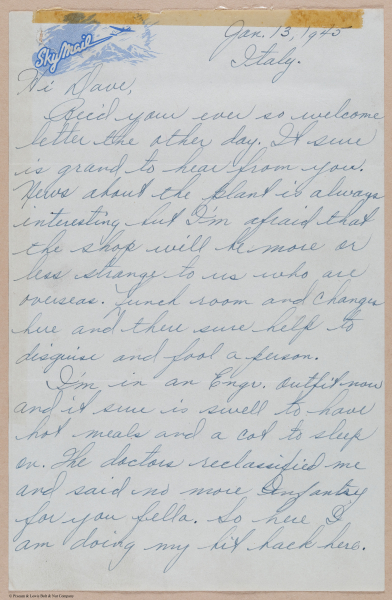 Sky Mail
Jan. 13, 1945
Italy.
Hi Dave,
Rec'd your ever so welcome
letter the other day. It sure
is grand to hear from you.
News about the plant is always
interesting but I'm afraid that
the shop will be more or
less strange to us who are
overseas. Lunch room and changes
here and there sure help to
disguise and fool a person.
I'm in an Engr. outfit now
and it sure is swell to have
hot meals and a cot to sleep
on. The doctors reclassified me
and said no more Infantry
for you fella. So here I
am doing my bit back here.